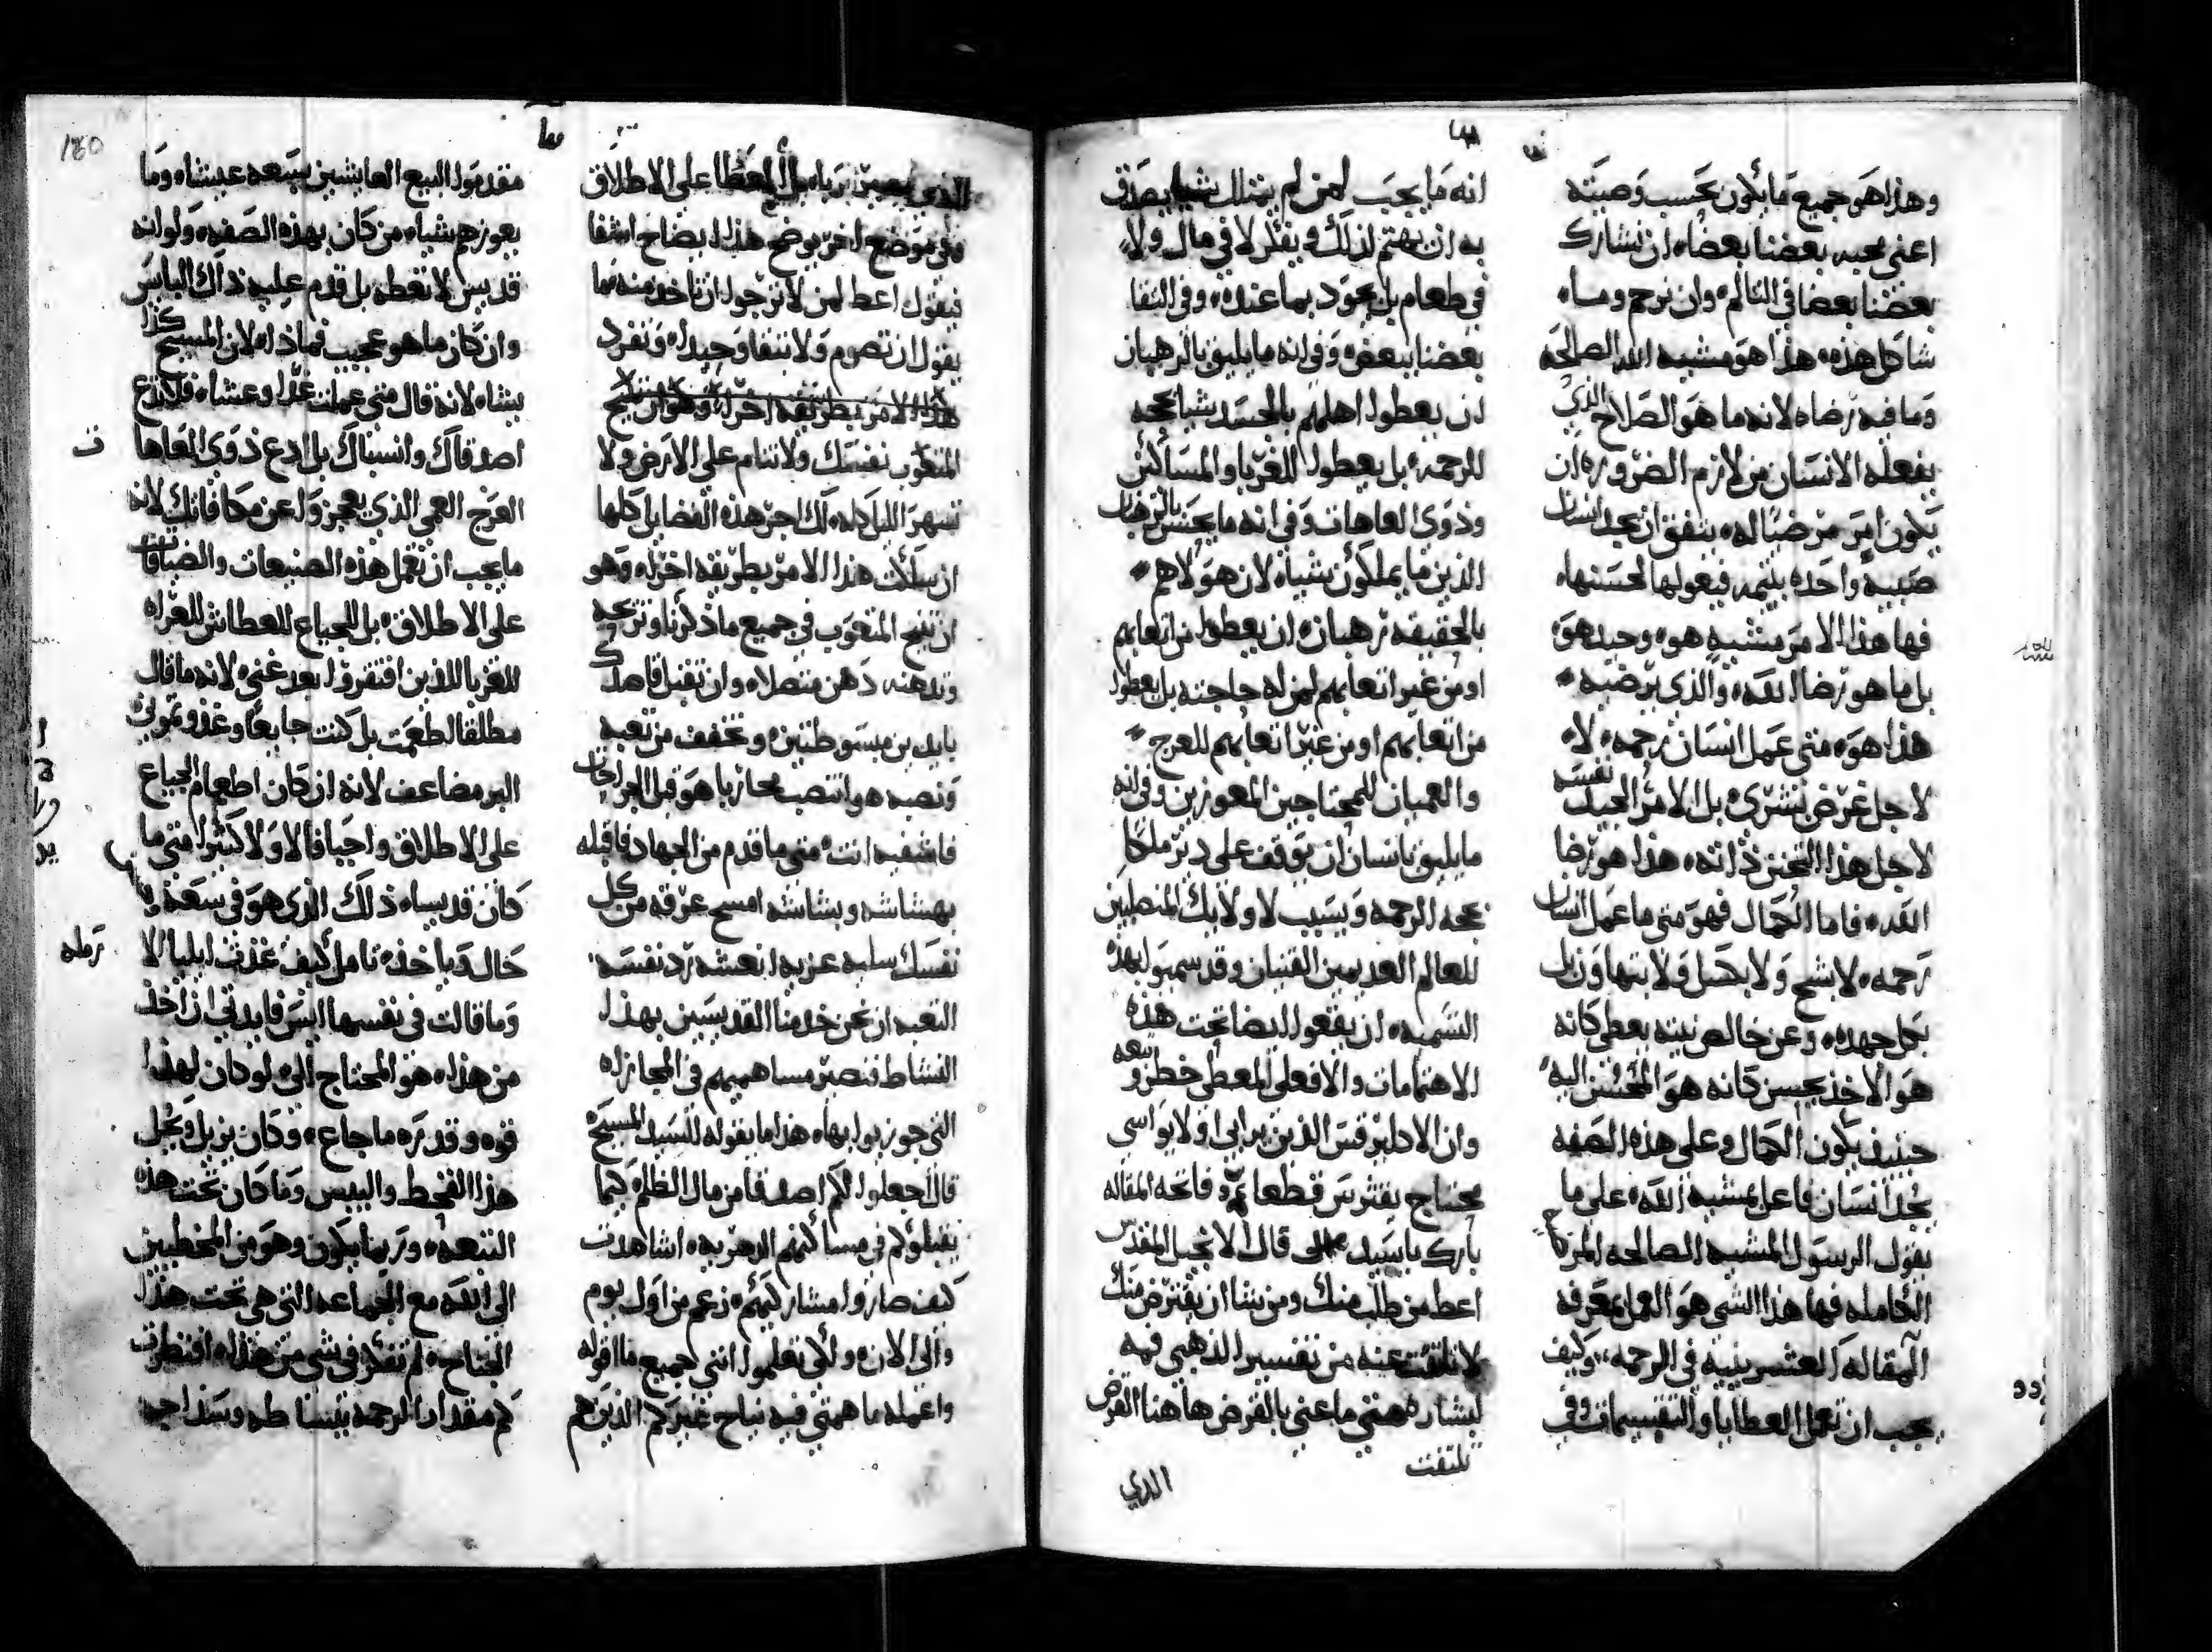 وهذا هو جميع ما يكون بحسب وصيته
اعني محبه بعضنا بعضاه ان نشارك
بعضنا بعضا في التالم وان نرحم ومساه
شاكل هذه هذا هو مشيه الله الصالحه
وما فيه رضاه لانه ما هو الصلاح الذي
يفعله الانسان من لازم الضروره ان
يكون امر مرضيا له يتفق ان يجد انسان
صبيه واحده يتيمه فيعولها لحسنها
فها هذا الامر مشيه هوه وحيد هوه
بل ما هو رضا الله والذي يرضيه
هذا هوه متى عمل انسان رحمه لا
لاجل غرض بشرى بل الامر الجيد نفسه
لاجل هذا التحنن ذاته هذا هو رضا
الله فاما الكمال فهو متى ما عمل انسان
رحمه لا بشح ولا بكسل ولا بتهاون بل
بكل جهده وعن خالص نيته يعطي كانه
هو الاخذ يحسن كانه هو المحسن اليه
حينيذ يكون الكمال وعلى هذه الصفه
نجد انسان فاعل بمشيه الله على ما
يقول الرسول المشيه الصالحه المرضيه
الكامله فها هذا الشي هو العمل بمعرفه
المقاله العشرينيه في الرحمه وكيف
يجب ان تعمل العطايا والتقسيمات وفي
انه ما يجب لمن لم يمتلك شيا يصدق
به ان يهتم لذلك ويفكر لا في مال ولا
في طعام بل يجود بما عنده وفي التقا
بعضنا ببعض وفي انه ما يليق بالرهبان
ان يعطوا اهلهم بالجسد شيا بحجه
الرحمه بل يعطوا للغربا والمساكين
وذوى العاهات وفي انه ما يحسن بالرهبان
الذين ما يملكون شياه لان هولاهم
بالحقيقه رهبان ان يعطوا من اتعابهم
او من غير اتعابهم لمن له حاجته بل يعطوا
من اتعابهم او من غير اتعابهم للعرج
والعميان للمحتاجين المعوزين وفي انه
ما يليق بانسان ان يوقف على دير ملكا
بحجه الرحمه وبسبب لاولايك المنطيين
للعالم العديمين القنيان وقد سميوا بهذه
التسميه ان يقعوا ايضا تحت هذه
الاهتمامات والافعلى المعطي خطر وتبعه
وان الاكليرقس الذين يرابي اولا يواسي
محتاج يفترس قطعا فاتحه المقاله
بارك يا سيد قال الانجيل المقدس
اعط من طلب منك ومن شا ان يقترض منك
لا تلتفت عنه من تفسير الذهبي فمه
ليشاره متى ما عني بالقرض هاهنا القرض
تلتفت
الذي
الذي بل العطا على الاطلاق
وفي موضع اخر يوضح هذا ايضاح اشفا
فيقول اعط لمن لا ترجوا ان تاخذ منه فما
يقول ان تصوم ولا تتفا وحيدا وتنفرد
هذا الامر بطريقه اخرا وهو ان تنيح
المتعوب نفسك ولا تنام على الارض ولا
تسهر الليل كله لك اجر هذه الفضايل كلها
ان سلكت هذا الامر بطريقه اخرله وهو
ان تنيح المتعوب في جميع ما ذكرنا وتريحه
وتدهنه دهن متصلاه وان تقبل قاصدك
بايد بن مبسوطتين وتخفف من تعبه
وتصيه هو انتصب محاربا هو قبل الجراحات
فاشفيه انت متى ما قدم من الجهاد فاقبله
بهشاشه وبشاشه امسح عرقه من كل
نفسك سليه عزيه انعشه رد نفسه
التعبه ان نحن خدمنا القديسين بهذا
النشاط فنصير مساهميهم في المجازاه
التي جوزيوا بهاه هذا ما يقوله للسيد المسيح
قال اجعلوا لكم اصدقا من مال الظلم كيما
يقبلوكم في مساكنهم الدهريه اشاهدت
كيف صاروا مشاركيهم زعم من اول يوم
والى الان ولكي تعلموا انني جميع ما اقوله
واعمله ما همتي فيه نياح غيركم الذين هم
مقدموا البيع العايشين بسعه عيشاه وما
يعوزهم شياه من كان بهذه الصفه ولو انه
قديس لا تعطه بل قدم عليه ذاك البايس
وان كان ما هو عجيب فماذاه لان المسيح كذا
يشاه لانه قال متى عملت غدا وعشاه فلا تدع
اصدقاك وانسباك بل ادع ذوى العاها ت
العرج العمي الذي يعجزوا عن مكافاتك لانه
ما يجب ان تعمل هذه الصنيعات والضيافات
على الاطلاق بل للجياع للعطاش للعراه
للغربا للذين افتقروا بعد غنى لانه ما قال
مطلقا لطعمت بل كنت جايعا وغذوتموني
البر مضاعف لانه ان كان اطعام الجياع
على الاطلاق واجبا فالاولا كثيرا متى ما
كان قديساه ذلك الذي هو في سعه
حال وياخذه تامل كيف غذت ايليا الارمله
وما قالت في نفسها ايس فايدتي ان اخذ
من هذاه هو المحتاج الي لو كان لهذا
قوه وقدره ما جاع وكان يزيل ويحل
هذا القحط واليبس وما كان تحت هذه
التبعه وربما يكون وهو من المخطيين
الى الله مع الجماعه التي هي تحت هذا
الجناح لم تفكر في شي من هذاه انظرت
كم مقدار الرحمه ببساطه وسذاجه